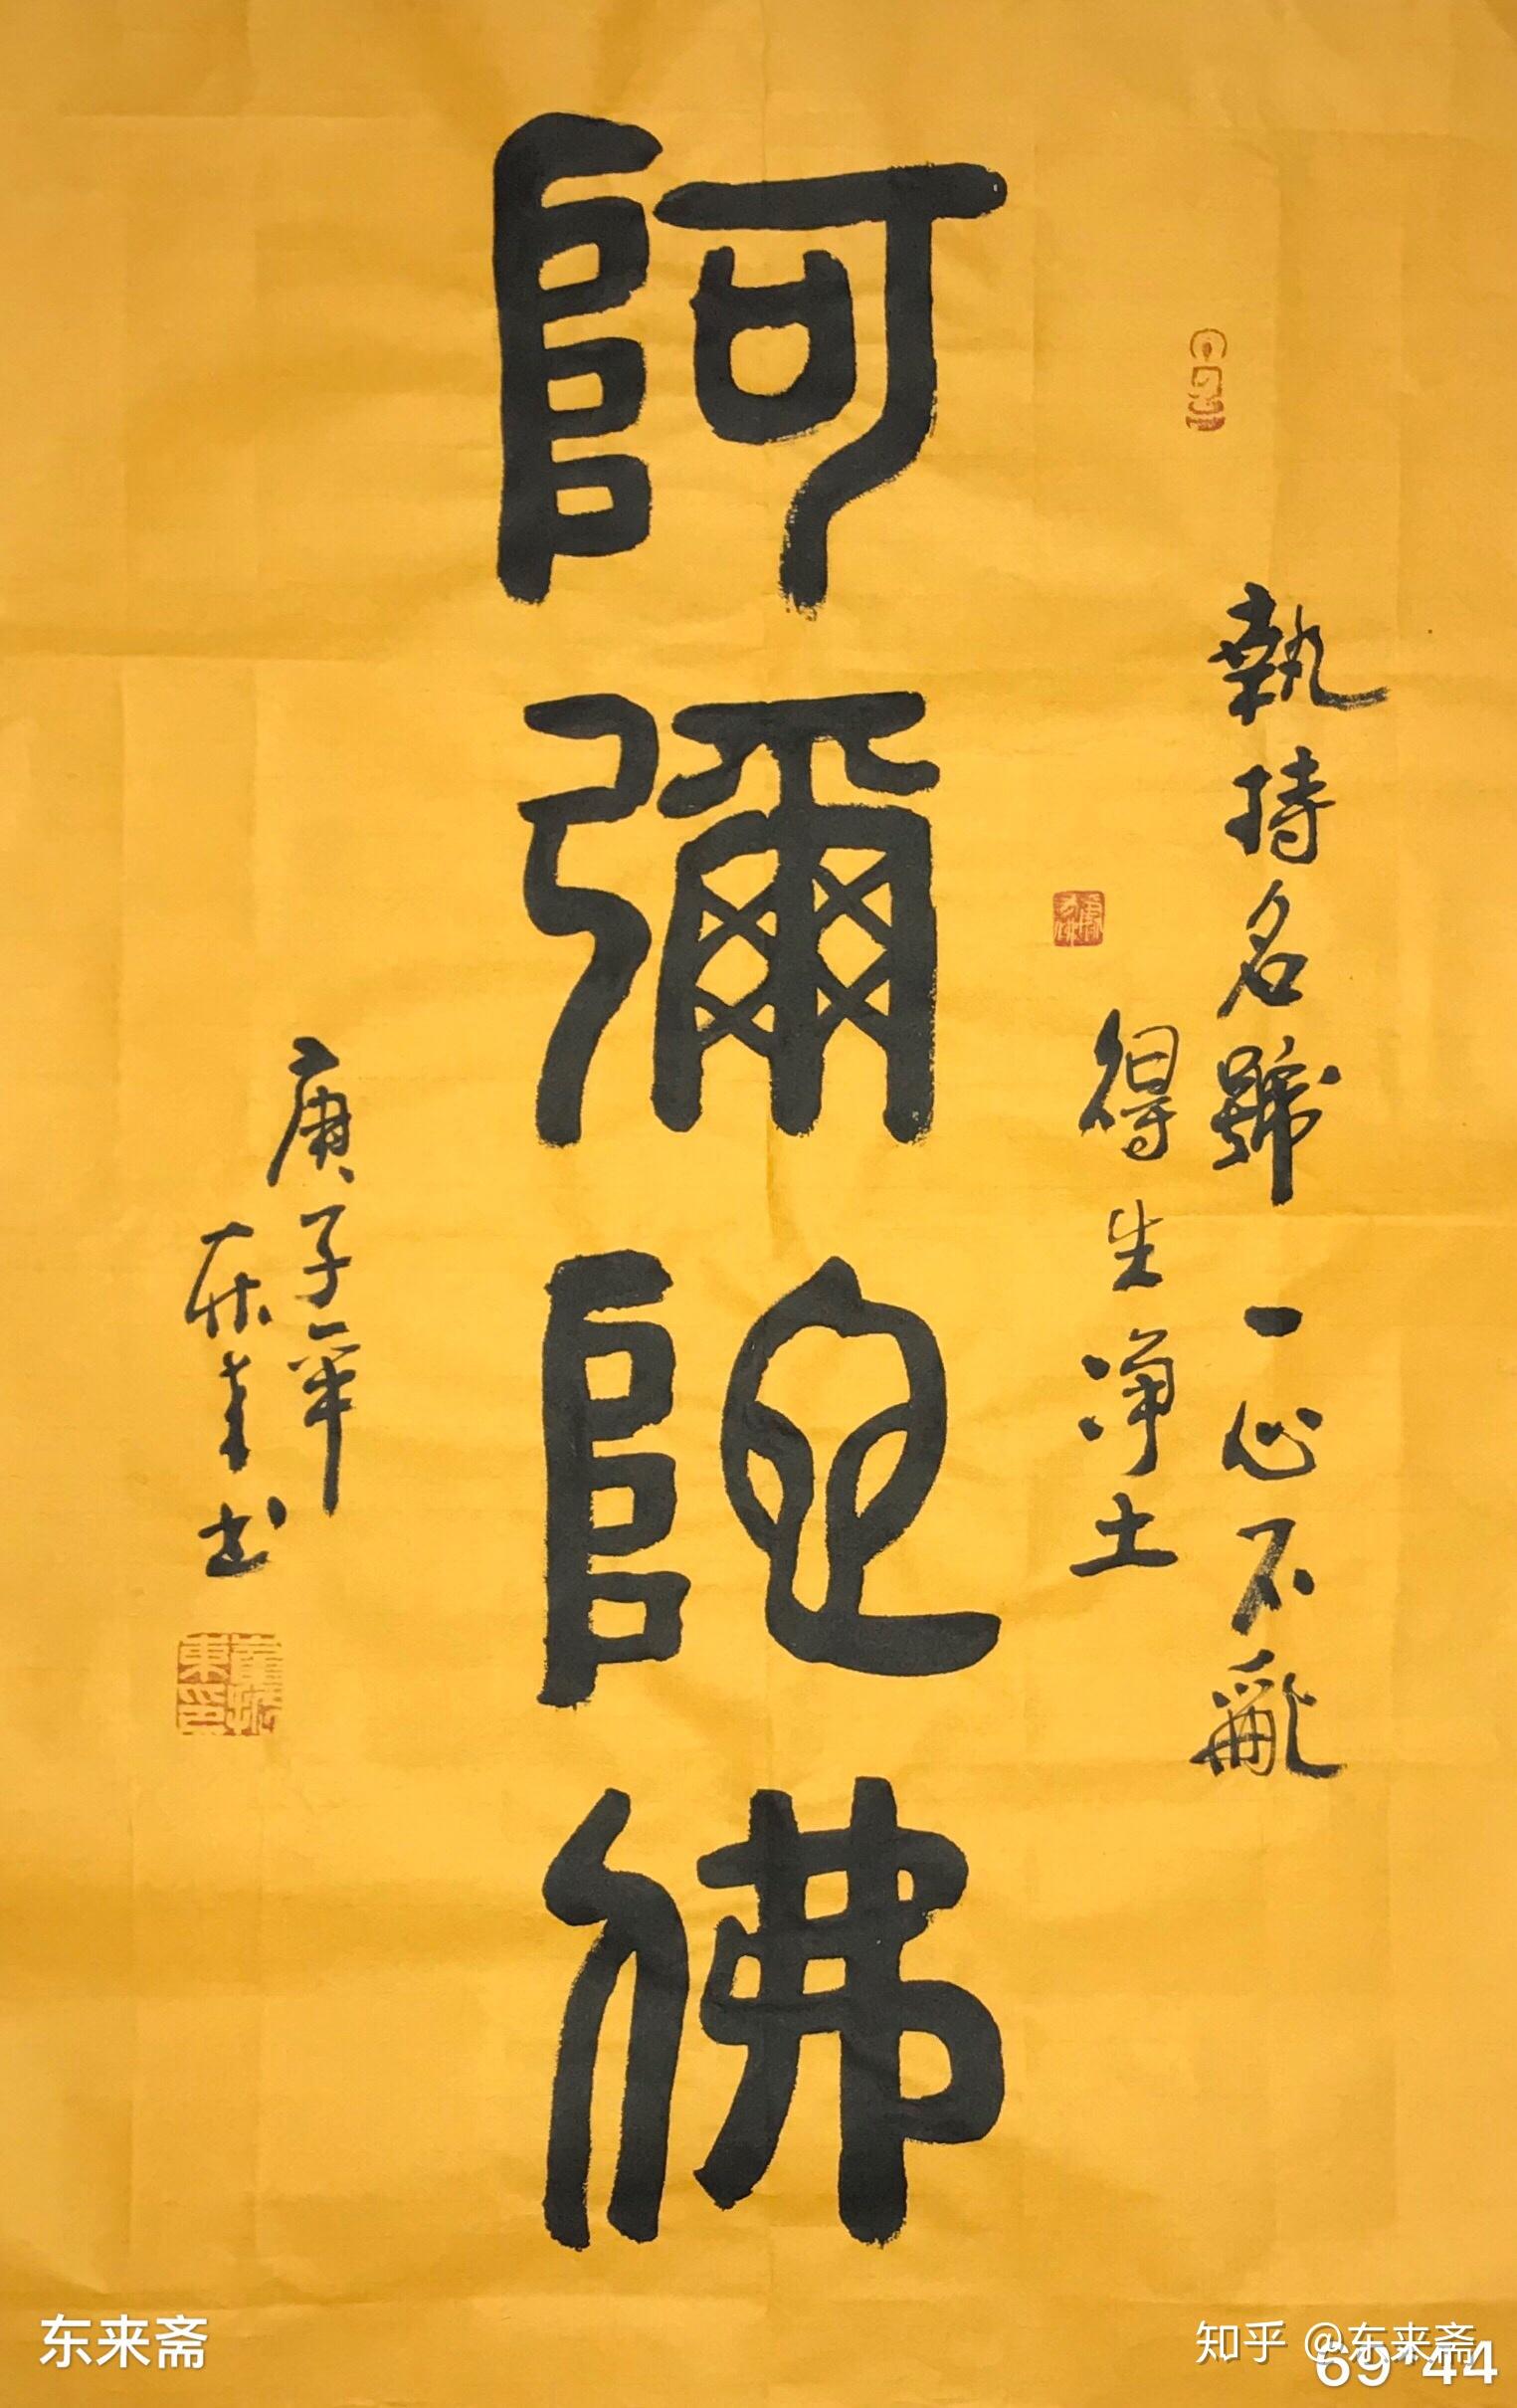 執持名號一心不亂
得生淨土
阿彌陀佛
庚子年
東書
东来斋
知乎 @东来斋
69*44